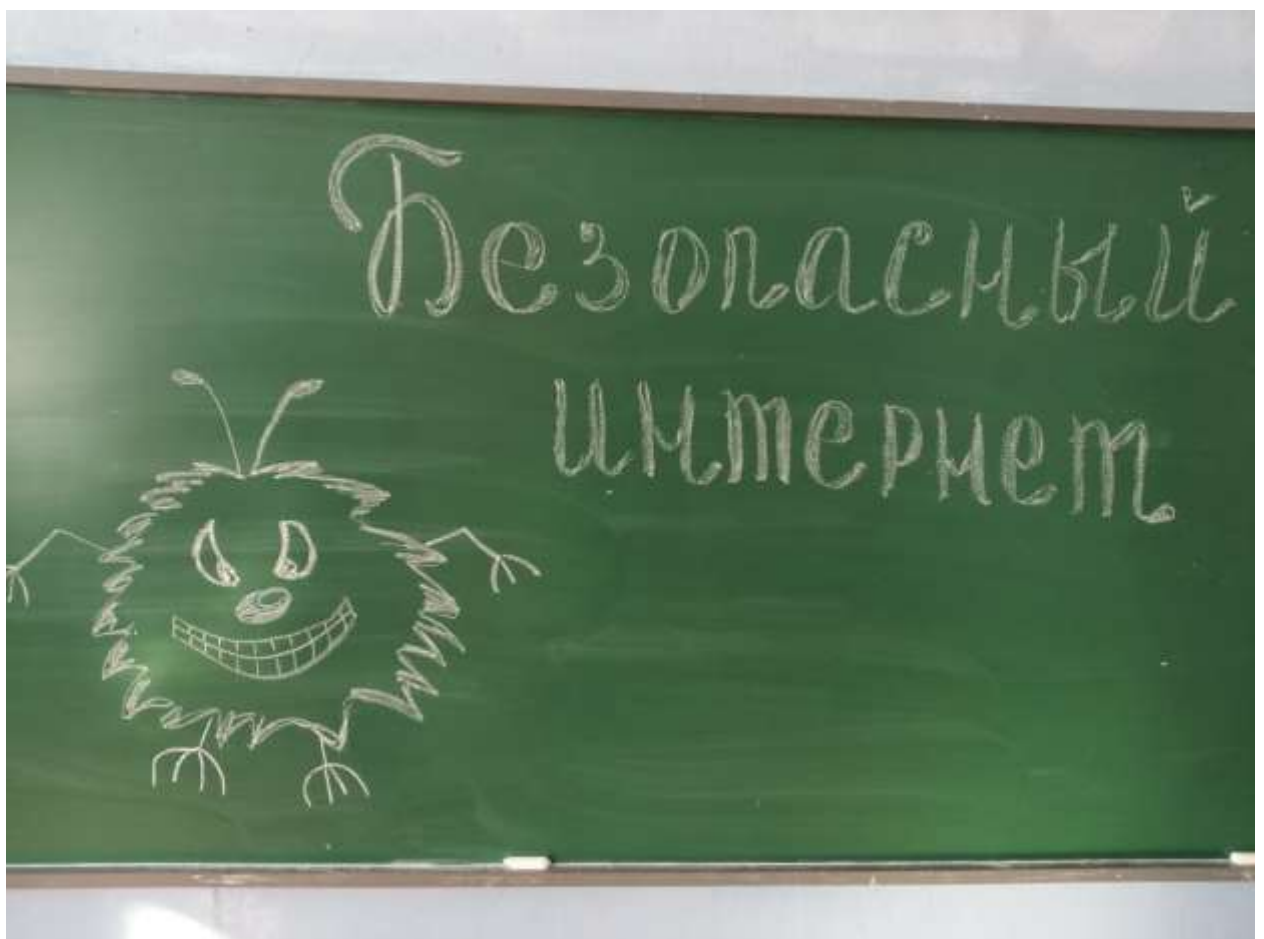 Безопасный
интернет